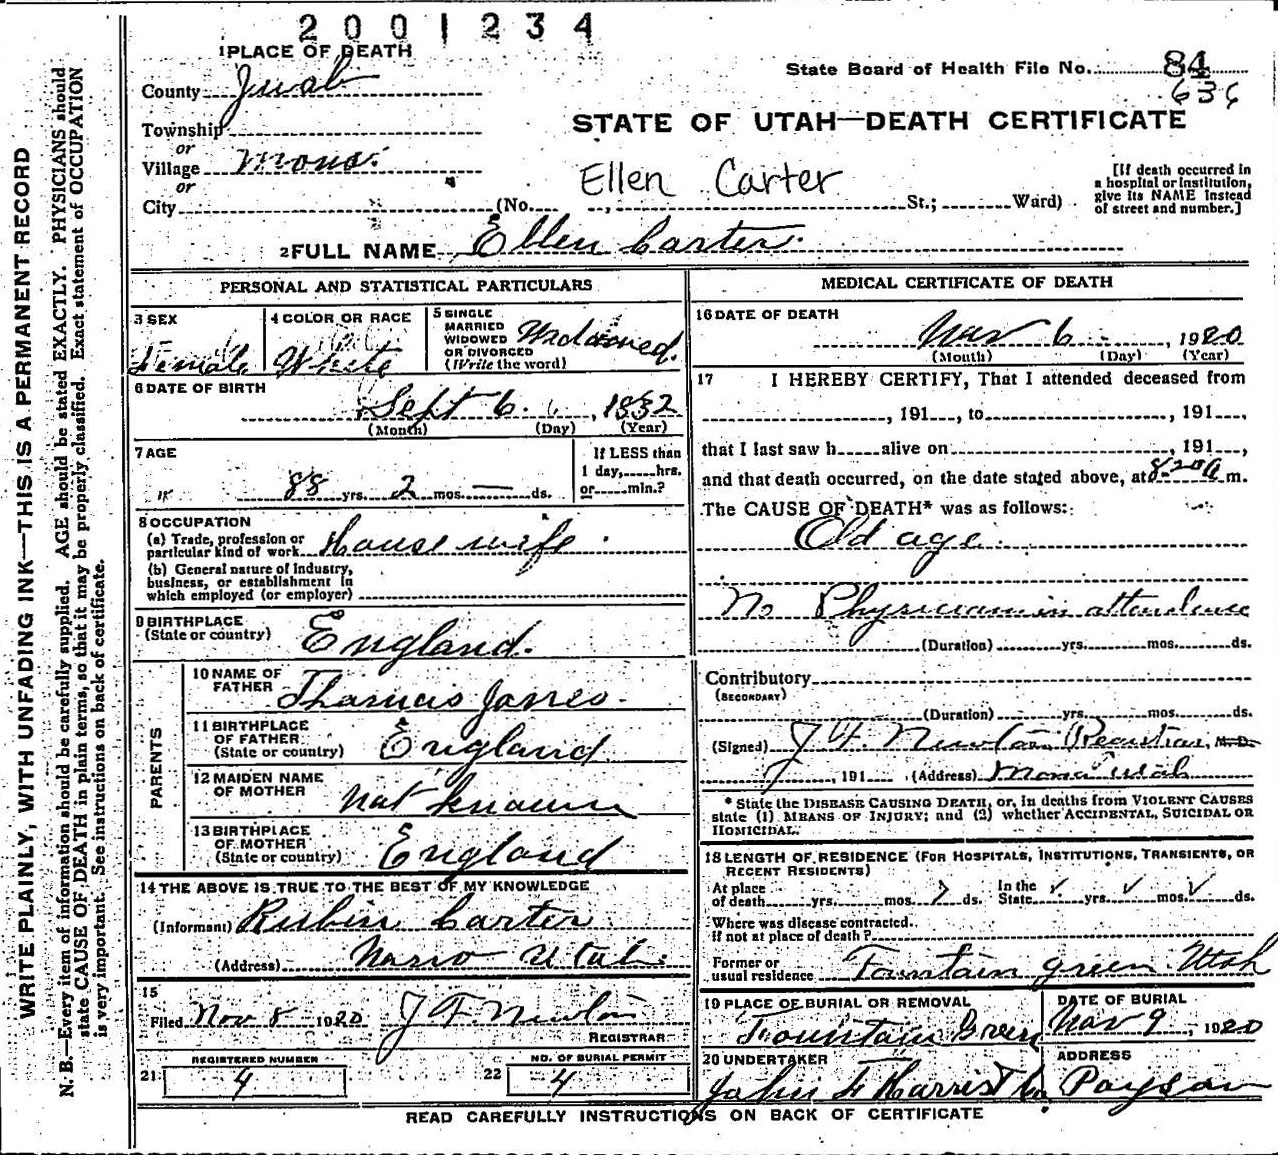 2001234
1 PLACE OF DEATH
County Juab
State Board of Health File No. 84
636
Township
or
Village Mona
or
City
STATE OF UTAH—DEATH CERTIFICATE
Ellen Carter
(No. , St.; Ward)
[If death occurred in
a hospital or institution,
give its NAME instead
of street and number.]
2 FULL NAME Ellen Carter.
PERSONAL AND STATISTICAL PARTICULARS
3 SEX
Female
4 COLOR OR RACE
White
5 SINGLE
MARRIED
WIDOWED
OR DIVORCED
(Write the word)
Widowed.
6 DATE OF BIRTH
Sept 6 , 1832
(Month) (Day) (Year)
7 AGE
88 yrs. 2 mos. — ds.
If LESS than
1 day, hrs.
or min.?
8 OCCUPATION
(a) Trade, profession or
particular kind of work House wife
(b) General nature of industry,
business, or establishment in
which employed (or employer)
9 BIRTHPLACE
(State or country) England.
PARENTS
10 NAME OF
FATHER Thomas Jones.
11 BIRTHPLACE
OF FATHER
(State or country) England
12 MAIDEN NAME
OF MOTHER Not known
13 BIRTHPLACE
OF MOTHER
(State or country) England
14 THE ABOVE IS TRUE TO THE BEST OF MY KNOWLEDGE
(Informant) Rubin Carter
(Address) Utah.
15
Filed Nov 8 1920 J F Newton
REGISTRAR
REGISTERED NUMBER
21 4
NO. OF BURIAL PERMIT
22 4
MEDICAL CERTIFICATE OF DEATH
16 DATE OF DEATH
Nov 6 , 1920
(Month) (Day) (Year)
17 I HEREBY CERTIFY, That I attended deceased from
, 191 , to , 191 ,
that I last saw h alive on , 191 ,
and that death occurred, on the date stated above, at 8.20 a m.
The CAUSE OF DEATH* was as follows:
Old age.
No Physician in attendence
(Duration) yrs. mos. ds.
Contributory
(SECONDARY)
(Duration) yrs. mos. ds.
(Signed) J F Newton Registrar, M.D.
, 191 (Address) Mona Utah
* State the DISEASE CAUSING DEATH, or, in deaths from VIOLENT CAUSES
state (1) MEANS OF INJURY; and (2) whether ACCIDENTAL, SUICIDAL OR
HOMICIDAL.
18 LENGTH OF RESIDENCE (FOR HOSPITALS, INSTITUTIONS, TRANSIENTS, OR
RECENT RESIDENTS)
At place
of death yrs. mos. 7 ds.
In the
State ✓ yrs. ✓ mos. ✓ ds.
Where was disease contracted.
If not at place of death?
Former or
usual residence Fountain green. Utah
19 PLACE OF BURIAL OR REMOVAL
Fountain Green
DATE OF BURIAL
Nov 9 , 1920
20 UNDERTAKER
John F Harris Co.
ADDRESS
Payson
READ CAREFULLY INSTRUCTIONS ON BACK OF CERTIFICATE
WRITE PLAINLY, WITH UNFADING INK—THIS IS A PERMANENT RECORD
N. B.—Every item of information should be carefully supplied. AGE should be stated EXACTLY. PHYSICIANS should
state CAUSE OF DEATH in plain terms, so that it may be properly classified. Exact statement of OCCUPATION
is very important. See instructions on back of certificate.